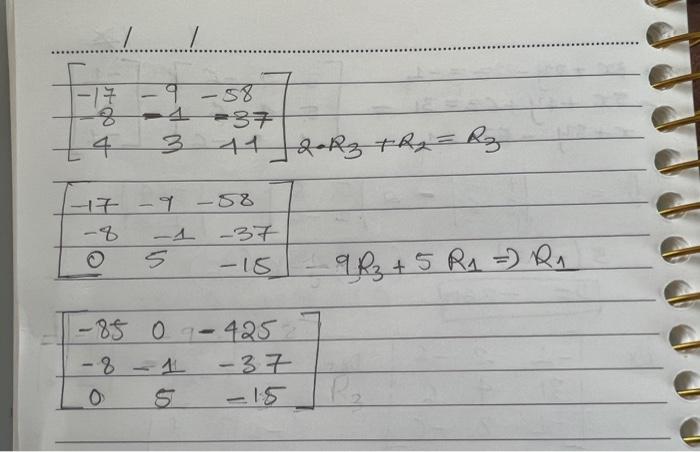 / /
-17 -9 -58
-8 -1 -37
4 3 11 2·R3 + R2 = R3
-17 -9 -58
-8 -1 -37
0 5 -15 - 9R3 + 5 R1 ⇒ R1
-85 0 -425
-8 -1 -37
0 5 -15